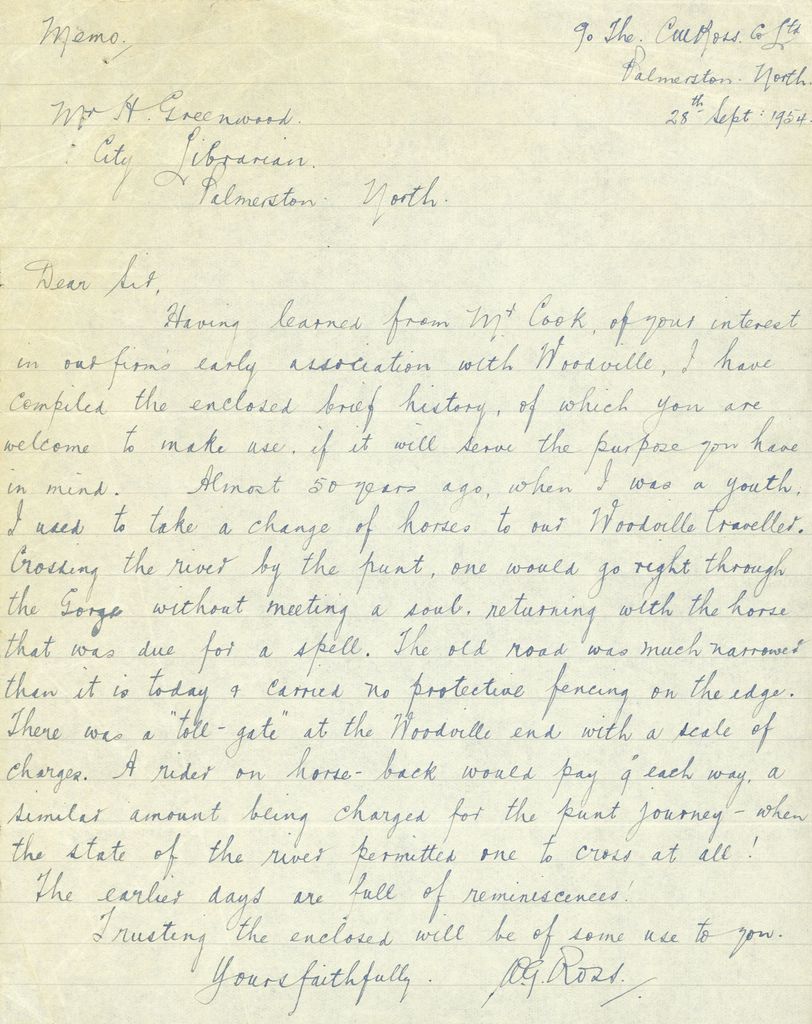 Memo.
c/o The. C M Ross. Co Ltd
Palmerston. North.
28th Sept: 1954
Mr H. Greenwood.
: City Librarian.
Palmerston. North.
Dear Sir,
Having learned from Mr Cook, of your interest
in our firm's early association with Woodville, I have
compiled the enclosed brief history, of which you are
welcome to make use. if it will serve the purpose you have
in mind. Almost 50 years ago, when I was a youth,
I used to take a change of horses to our Woodville Traveller.
Crossing the river by the punt, one would go right through
the Gorge without meeting a soul. returning with the horse
that was due for a spell. The old road was much narrower
than it is today & carried no protective fencing on the edge.
There was a "toll-gate" at the Woodville end with a scale of
charges. A rider on horse-back would pay each way, a
similar amount being charged for the punt journey - when
the state of the river permitted one to cross at all!
The earlier days are full of reminiscences!
Trusting the enclosed will be of some use to you.
Yours faithfully. Ross.